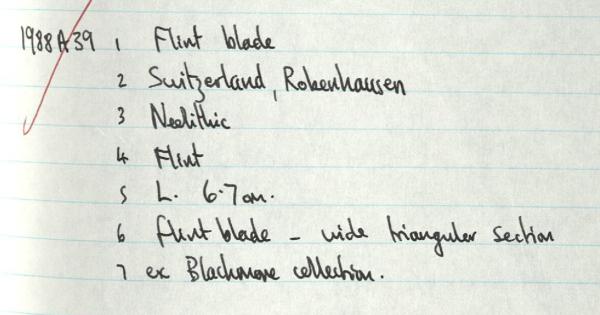 1988A39 1 Flint blade
2 Switzerland, Robenhausen
3 Neolithic
4 Flint
5 L. 6.7cm.
6 flint blade - wide triangular section
7 ex Blackmore collection.